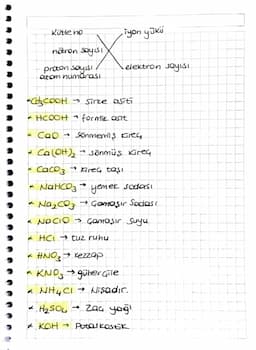 kütle no iyon yükü
nötron sayısı
proton sayısı elektron sayısı
atom numarası
CH₃COOH → sirke asiti
HCOOH → formik asit
CaO → sönmemiş kireç
Ca(OH)₂ → sönmüş kireç
CaCO₃ → kireç taşı
NaHCO₃ → yemek sodası
Na₂CO₃ → Çamaşır Sodası
NaClO → Çamaşır Suyu
HCl → tuz ruhu
HNO₃ → kezzap
KNO₃ → güherçile
NH₄Cl → Nişadır.
H₂SO₄ → Zaç yağı
KOH → Potaskostik